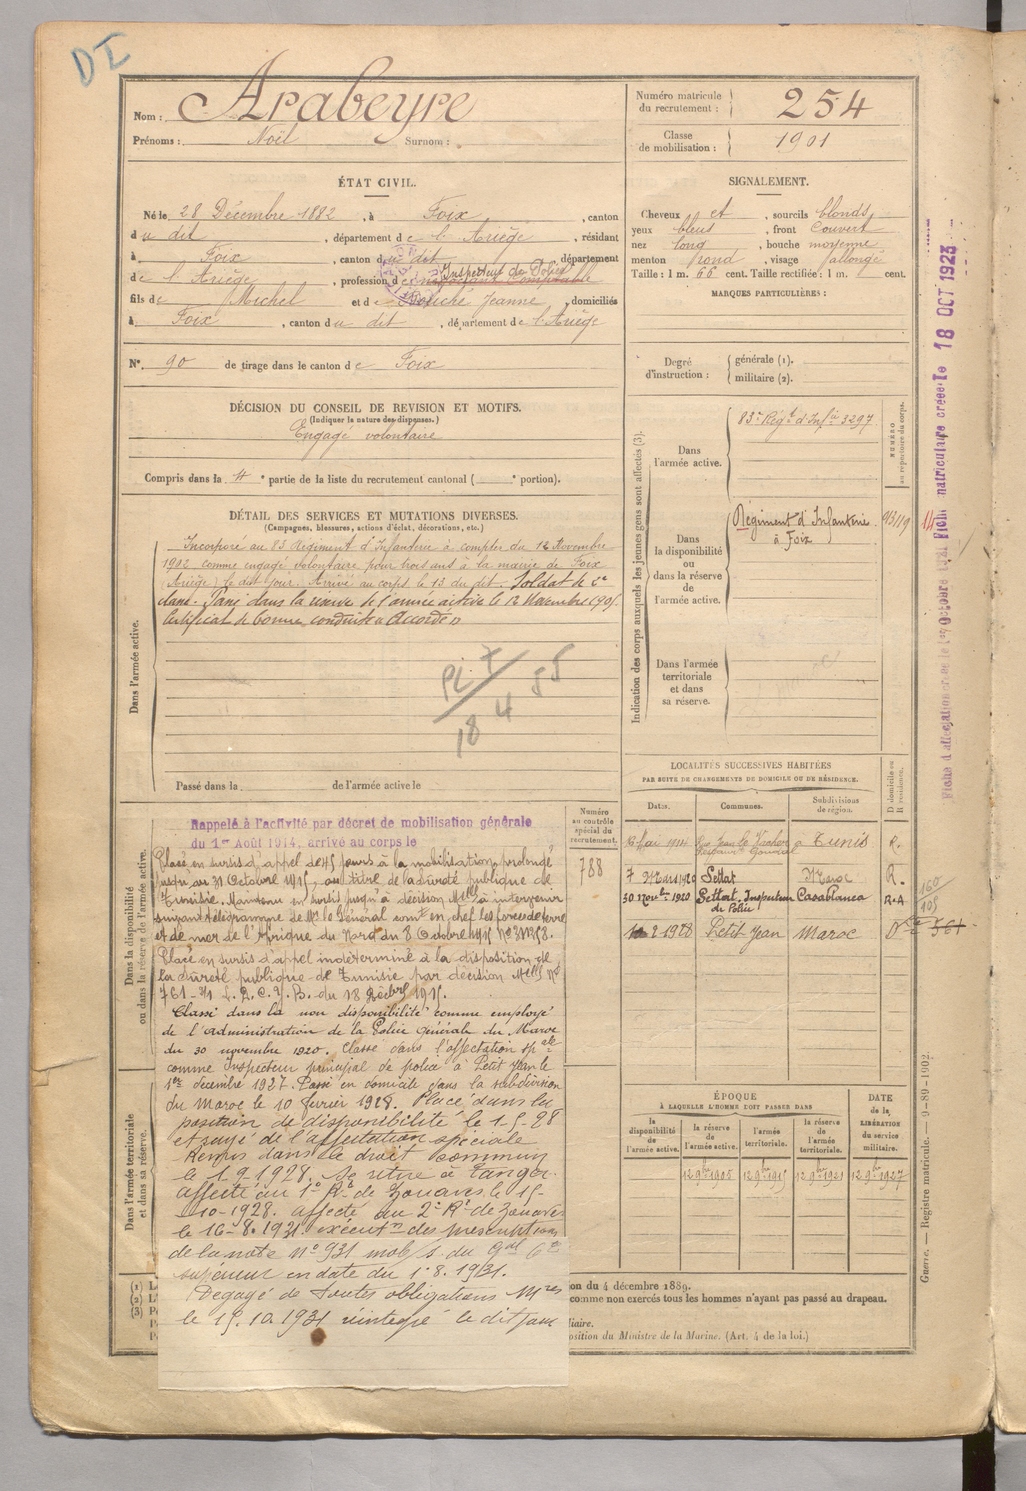 DI
Nom : Arabeyre
Prénoms : Noël Surnom :
Numéro matricule du recrutement : 254
Classe de mobilisation : 1901
ÉTAT CIVIL.
Né le 28 Décembre 1882, à Foix, canton
du dit, département de l'Ariège, résidant
à Foix, canton du dit, département
de l'Ariège, profession d Inspecteur de Police
fils de Michel et de Jeanne, domiciliés
à Foix, canton du dit, département de l'Ariège
N° 90 de tirage dans le canton de Foix
SIGNALEMENT.
Cheveux et, sourcils blonds,
yeux bleus, front Couvert
nez long, bouche moyenne
menton rond, visage allongé
Taille : 1 m. 66 cent. Taille rectifiée : 1 m. cent.
MARQUES PARTICULIÈRES :
Degré d'instruction : générale (1).
militaire (2).
DÉCISION DU CONSEIL DE REVISION ET MOTIFS.
(Indiquer la nature des dispenses.)
Engagé volontaire
Compris dans la 4e partie de la liste du recrutement cantonal ( e portion).
DÉTAIL DES SERVICES ET MUTATIONS DIVERSES.
(Campagnes, blessures, actions d'éclat, décorations, etc.)
Dans l'armée active.
Incorporé au 83 Régiment d'Infanterie à compter du 12 Novembre
1902 comme engagé volontaire pour trois ans à la mairie de Foix
(Ariège) le dit jour. Arrivé au corps le 13 du dit. Soldat de 2e
classe. Passé dans la réserve de l'armée active le 12 Novembre 1905.
Certificat de bonne conduite « Accordé »
Passé dans la de l'armée active le
Indication des corps auxquels les jeunes gens sont affectés (3).
Dans l'armée active.
83e Régt d'Infie 3297
NUMÉRO au répertoire du corps.
Dans la disponibilité ou dans la réserve de l'armée active.
Régiment d'Infanterie
à Foix
Dans l'armée territoriale et dans sa réserve.
Fiche matriculaire créée le 18 OCT 1923
LOCALITÉS SUCCESSIVES HABITÉES
PAR SUITE DE CHANGEMENTS DE DOMICILE OU DE RÉSIDENCE.
Dates. Communes. Subdivisions de région. D domicile ou R résidence.
6 Mai 1914 Tunis R.
7 Mars 1920 Settat Maroc R.
30 Novbre 1920 Settat, Inspecteur de Police Casablanca R.A
2 1928 Petit Jean Maroc D
Numéro au contrôle spécial du recrutement.
788
Dans la disponibilité ou dans la réserve de l'armée active.
Rappelé à l'activité par décret de mobilisation générale
du 1er Août 1914, arrivé au corps le
Placé en sursis d'appel de 45 jours à la mobilisation, prolongé
jusqu'au 31 Octobre 1915, au titre de la sûreté publique de
Tunisie. Maintenu en sursis jusqu'à décision Melle à intervenir
suivant télégramme de Mr le Général comt en chef les forces de terre
et de mer de l'Afrique du Nord du 8 Octobre 1915
Placé en sursis d'appel indéterminé à la disposition de
la sûreté publique de Tunisie par décision Melle No
761 du 18 1915.
Classé dans la non disponibilité comme employé
de l'administration de la Police générale du Maroc
du 30 novembre 1920. Classé dans l'affectation spale
comme Inspecteur principal de police à Petit Jean le
1er décembre 1927. Passé en domicile dans la subdivision
du Maroc le 10 février 1928. Placé dans la
position de disponibilité le 1-5-28
et rayé de l'affectation spéciale
Remis dans le droit commun
le 1.9.1928. Se retire à Tanger.
affecté au 1er Rt de Zouaves le 15-
10-1928. affecté au 2e Rt de Zouaves
le 16-8.1931. exécutn des prescriptions
de la note n° 931 mob/s du Gal Ct
supérieur en date du 1.8.1931.
Dégagé de toutes obligations Mres
le 15.10.1931 réintégré le dit jour
Dans l'armée territoriale et dans sa réserve.
ÉPOQUE
À LAQUELLE L'HOMME DOIT PASSER DANS
la disponibilité de l'armée active. la réserve de l'armée active. l'armée territoriale. la réserve de l'armée territoriale. DATE de la LIBÉRATION du service militaire.
12 9bre 1905 12 9bre 1915 12 9bre 1921 12 9bre 1927
ion du 4 décembre 1889.
comme non exercés tous les hommes n'ayant pas passé au drapeau.
liaire.
osition du Ministre de la Marine. (Art. 4 de la loi.)
Guerre. — Registre matricule. — 9-89-1902.